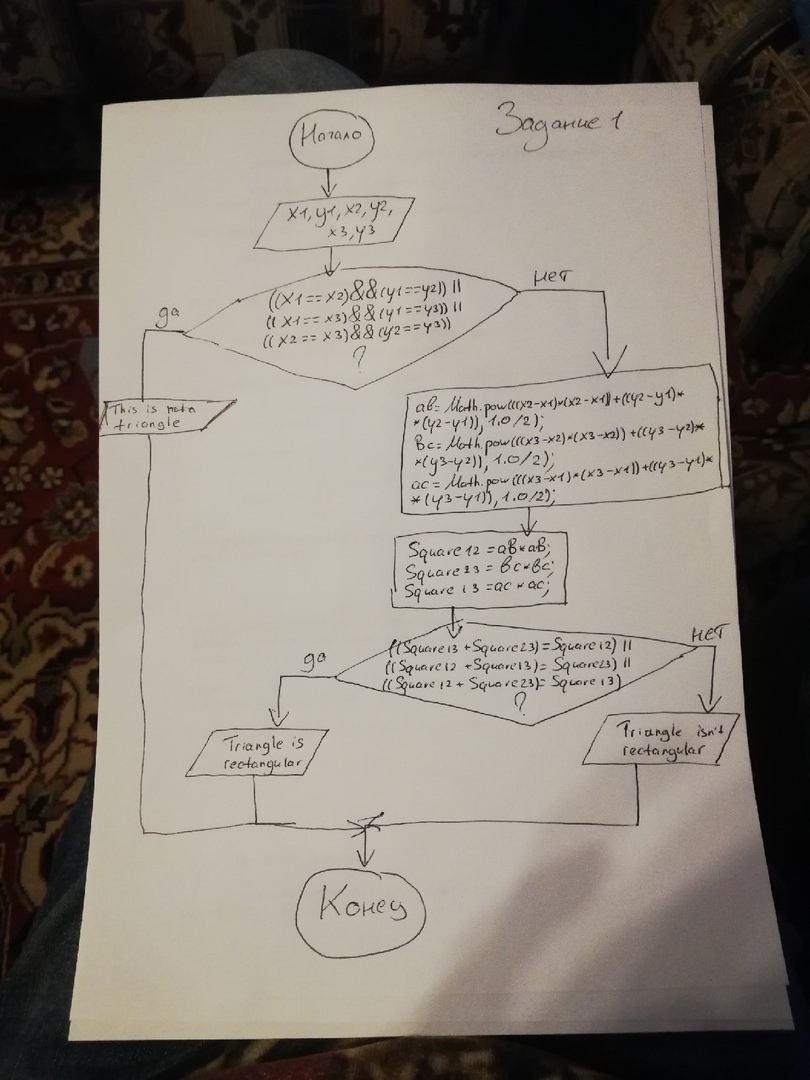 Задание 1
Начало
x1, y1, x2, y2,
x3, y3
((x1==x2)&&(y1==y2)) ||
((x1==x3)&&(y1==y3)) ||
((x2==x3)&&(y2==y3))
?
да
нет
This is not a
triangle
ab= Math.pow(((x2-x1)*(x2-x1))+((y2-y1)*
*(y2-y1)), 1.0/2);
bc= Math.pow(((x3-x2)*(x3-x2))+((y3-y2)*
*(y3-y2)), 1.0/2);
ac= Math.pow(((x3-x1)*(x3-x1))+((y3-y1)*
*(y3-y1)), 1.0/2);
Square12 =ab*ab;
Square23 = bc*bc;
Square13 =ac*ac;
((Square13 +Square23)=Square12) ||
((Square12 +Square13)= Square23) ||
((Square12 + Square23)= Square13)
?
да
нет
Triangle is
rectangular
Triangle isn't
rectangular
Конец